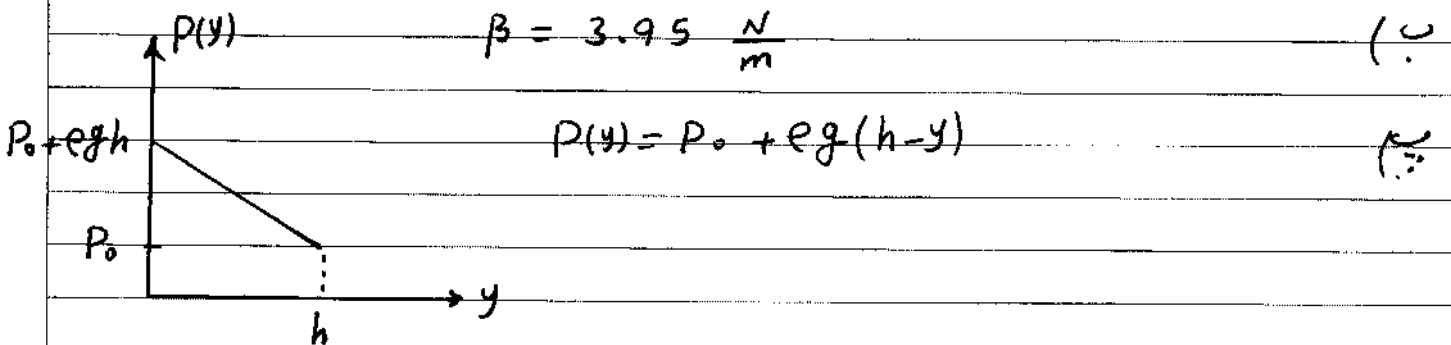 P(y)
β = 3.95 N/m
ب)
P₀ + ρgh
P(y) = P₀ + ρg(h-y)
پ)
P₀
y
h